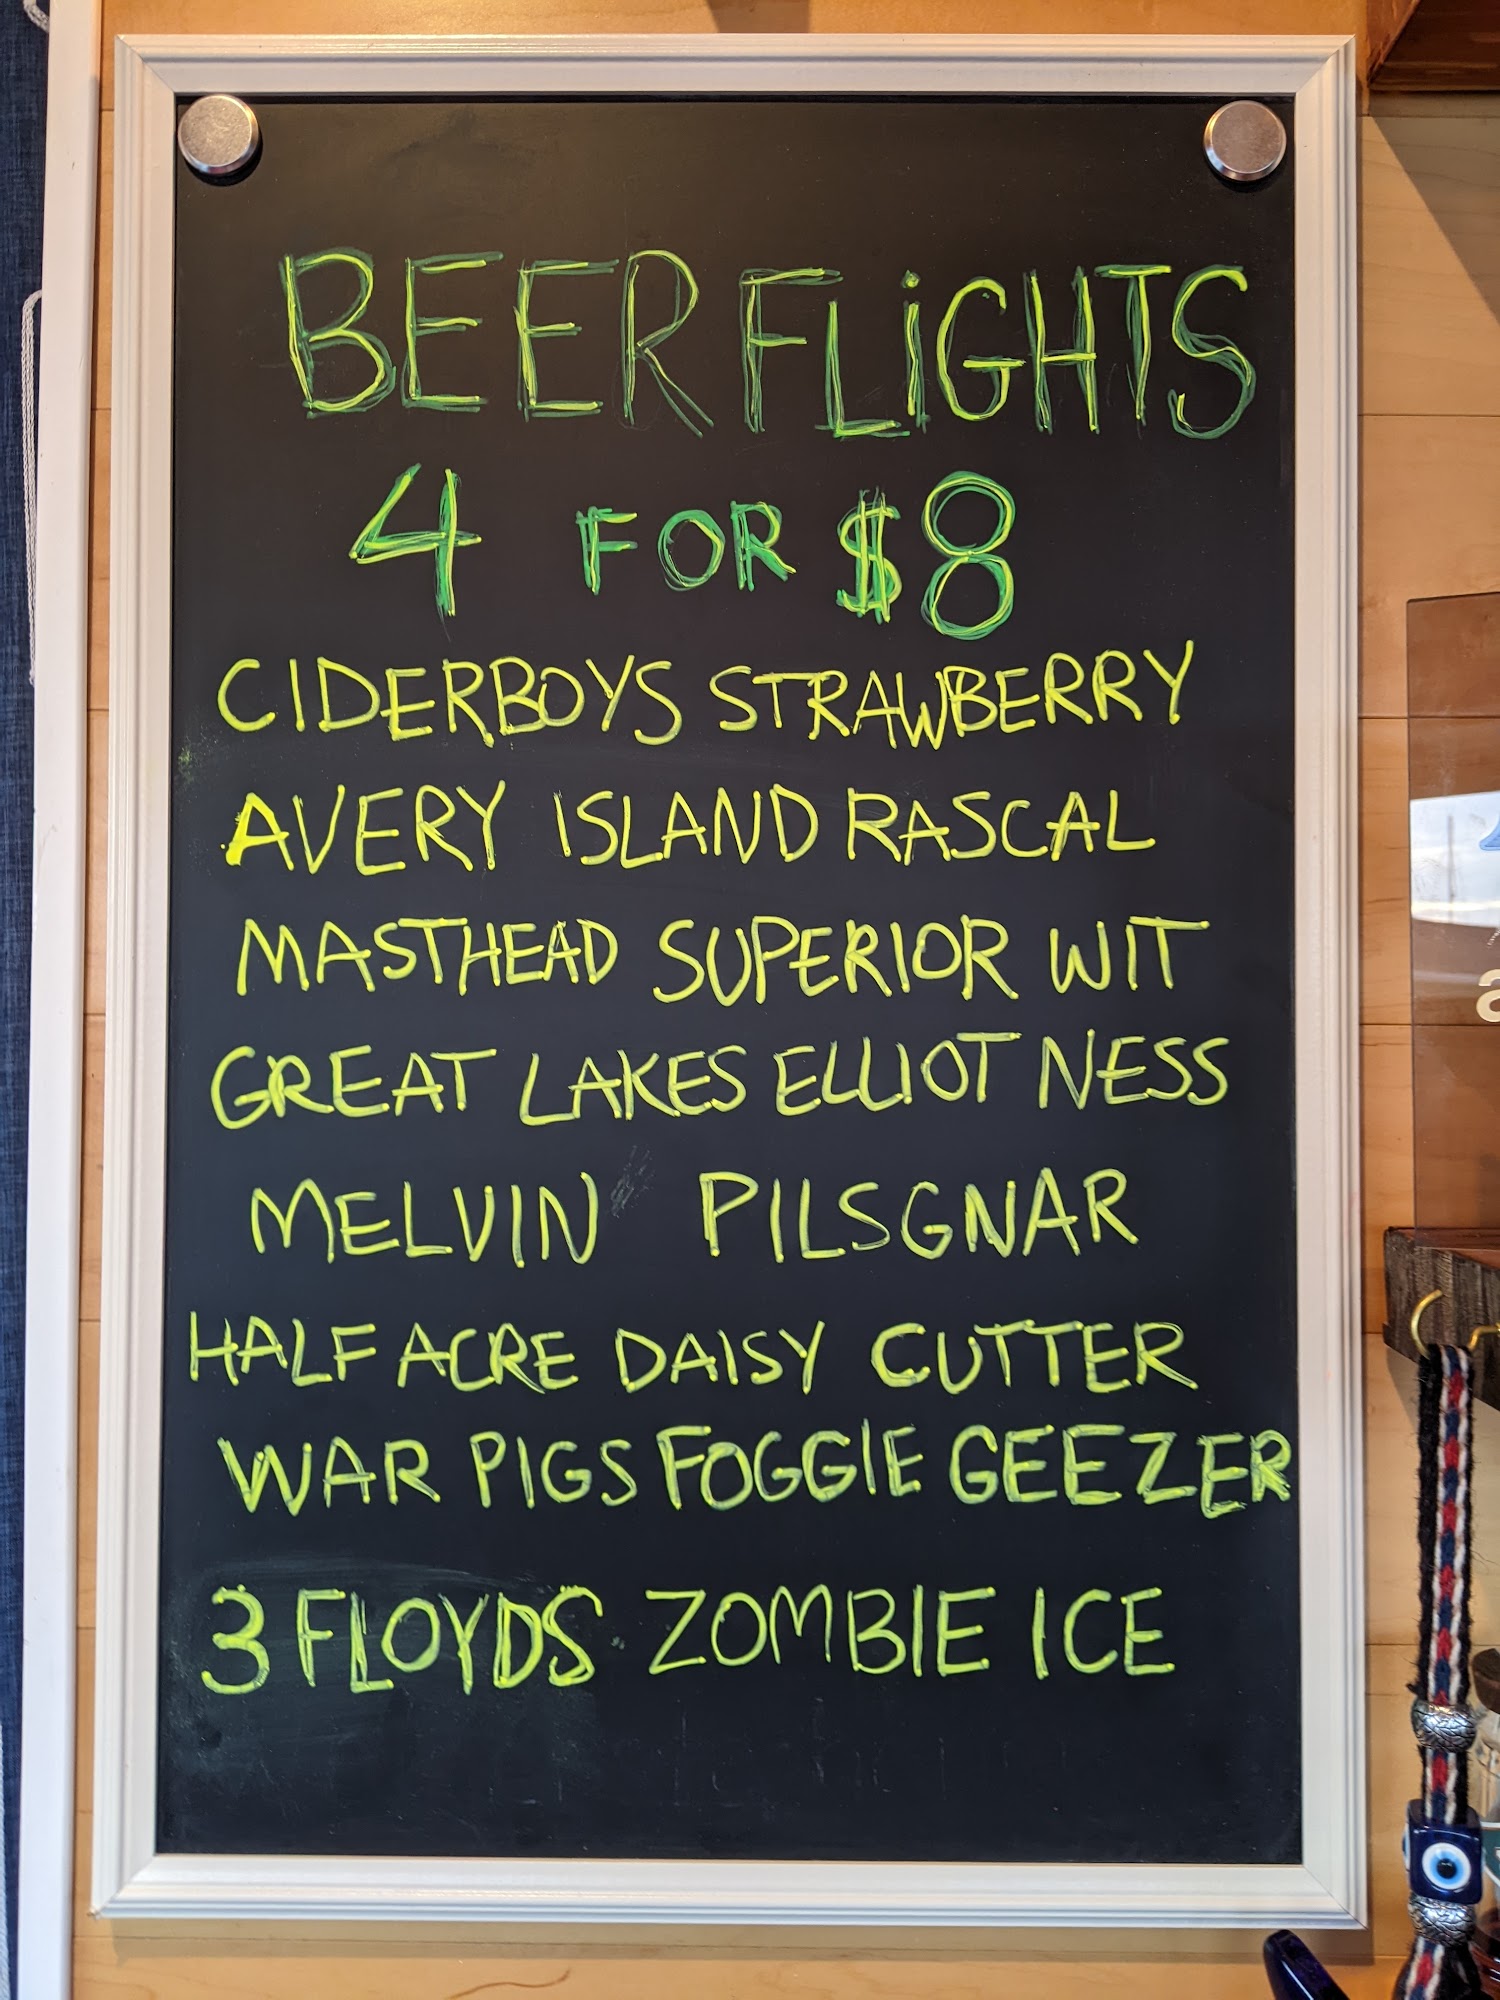 BEER FLiGHTS
4 FOR $8
CIDERBOYS STRAWBERRY
AVERY ISLAND RASCAL
MASTHEAD SUPERIOR WIT
GREAT LAKES ELLIOT NESS
MELVIN PILSGNAR
HALF ACRE DAISY CUTTER
WAR PIGS FOGGIE GEEZER
3 FLOYDS ZOMBIE ICE